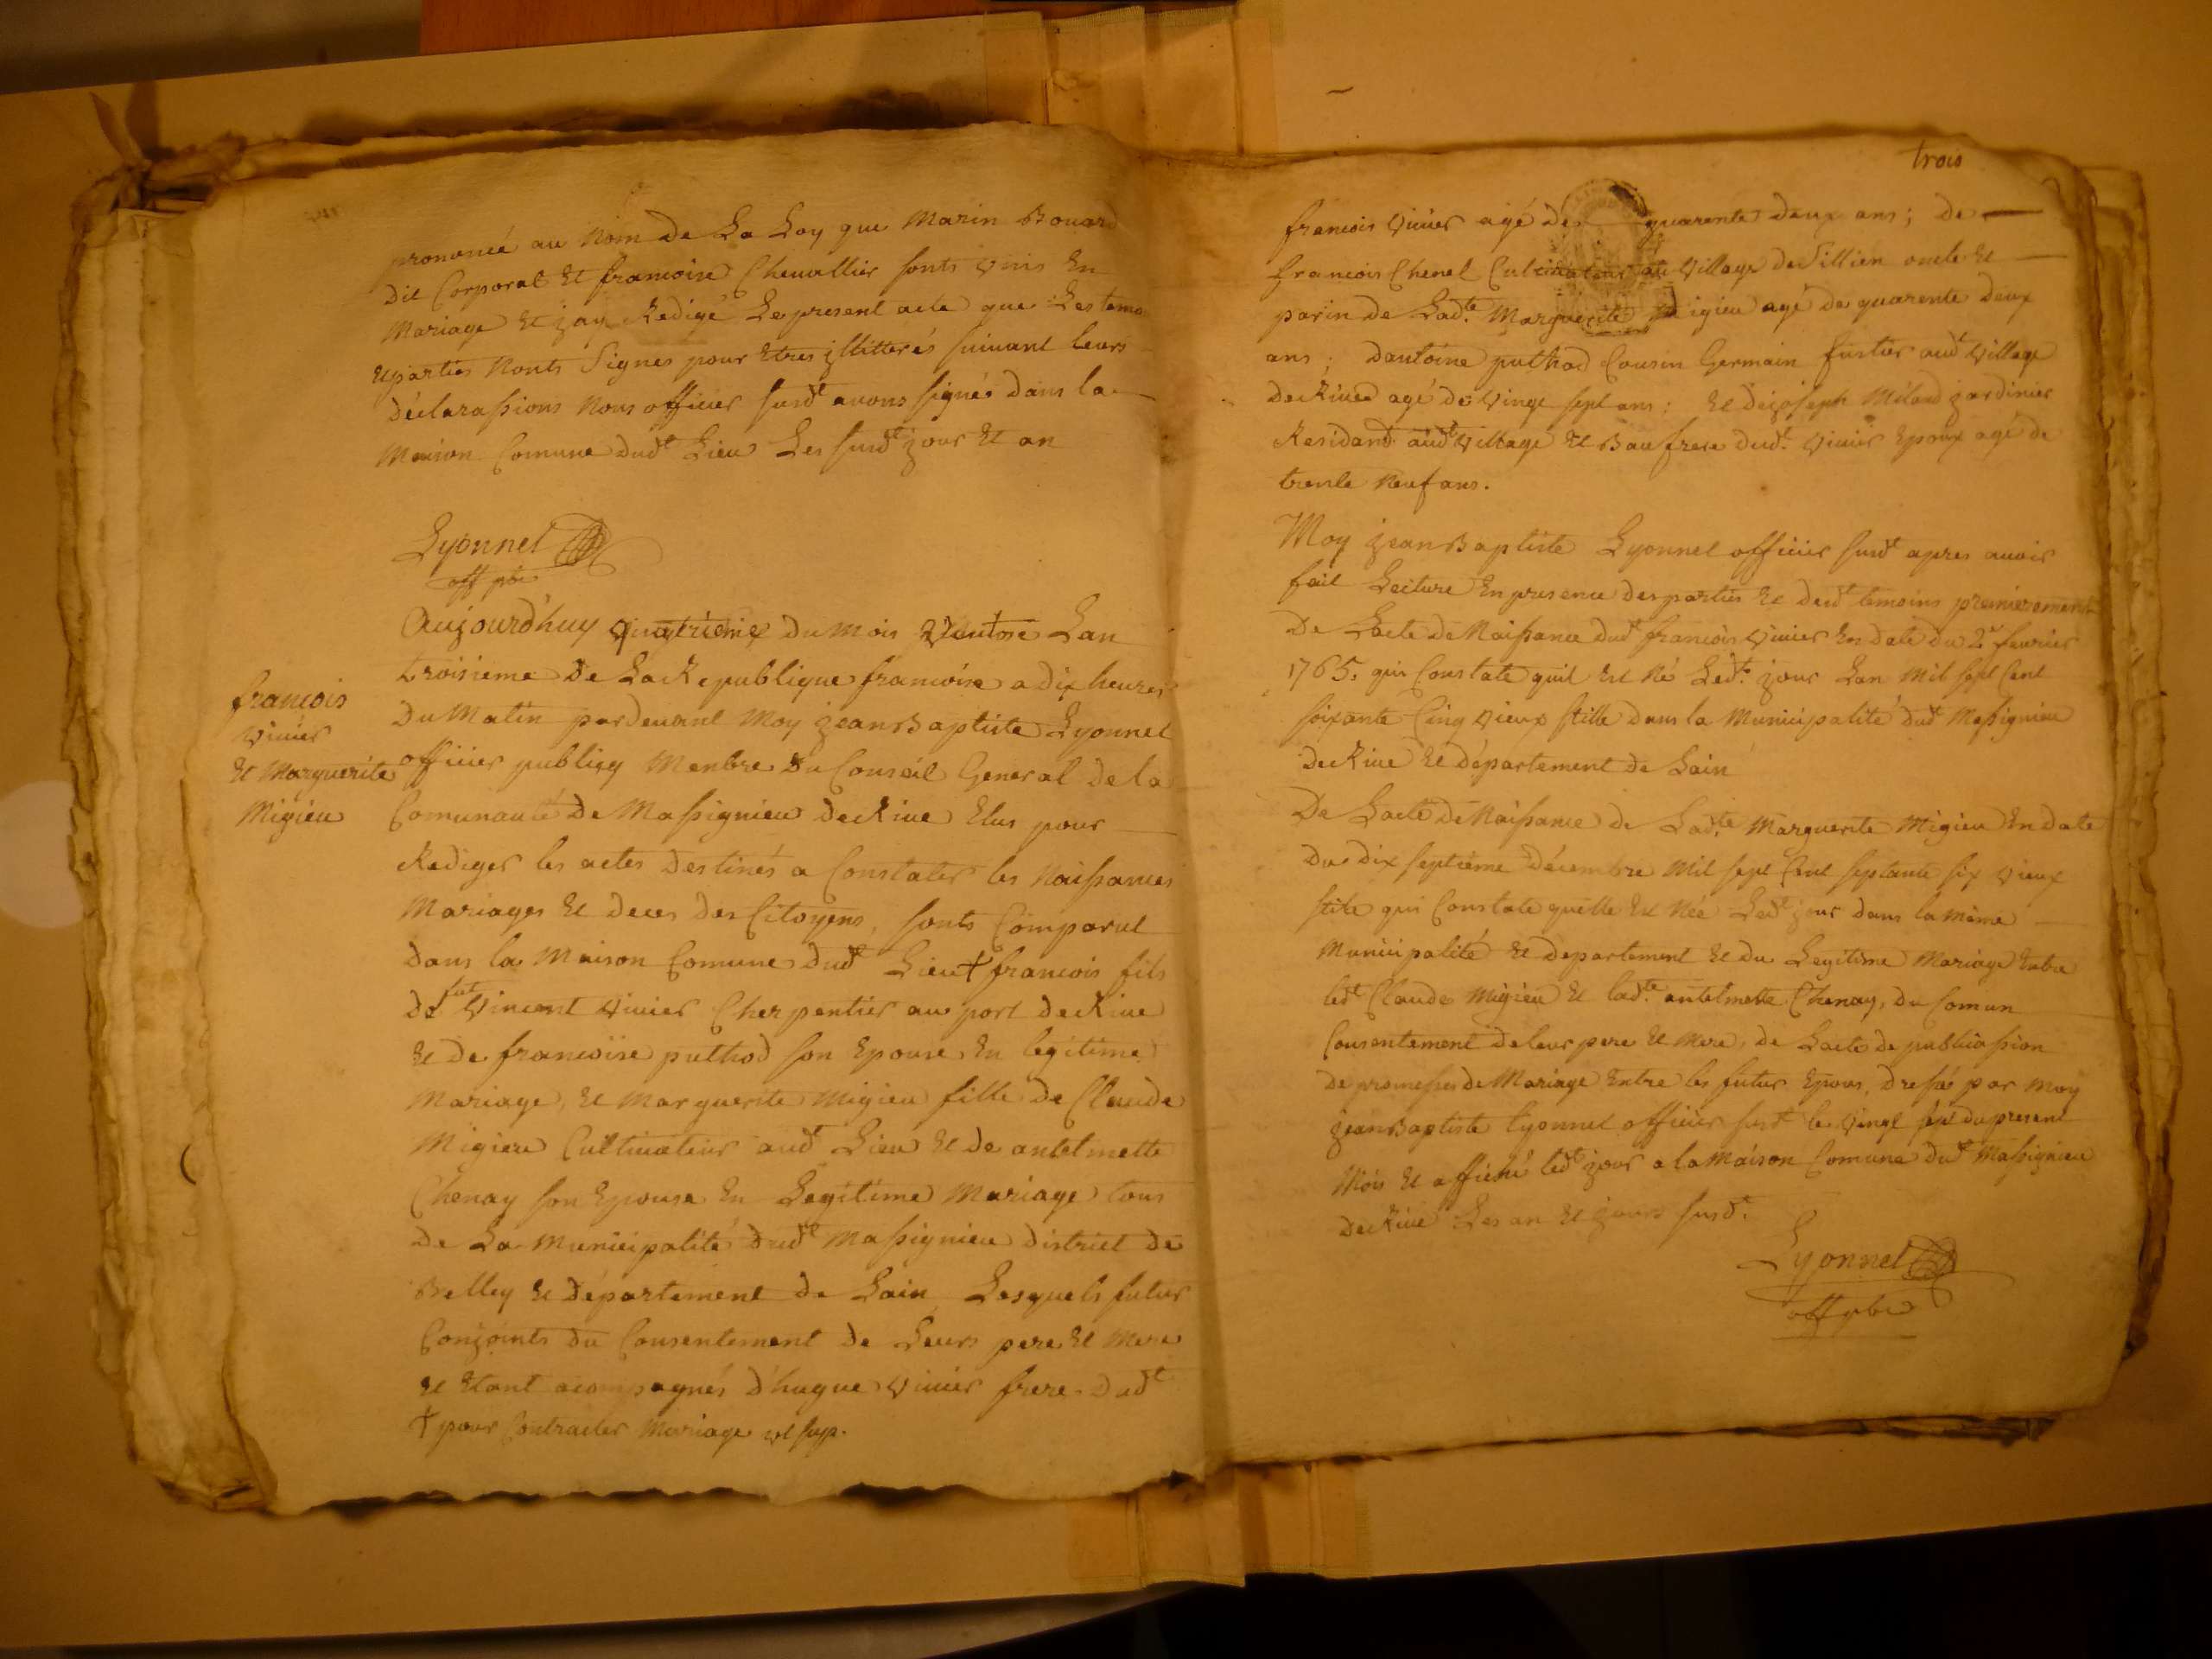 prononcé au Nom de La Loy que Marin Bouard
dit Corporal Et francoise Chevallier sonts Unis En
Mariage Et jay Redigé Le present acte que Les temo
Eparties Nonts Signes pour Etres jllitterés suivant leurs
déclarassions Nous officier susdt avons signés dans la
Maison Comune dudt Lieu Les susdt jour Et an
Lyonnel
off
Aujourd'huy du Mois Ventose Lan
troisieme De La Republique francoise a dix heures
Du Matin pardevant Moy jean Baptiste Lyonnel
officier publicq Menbre Du Conseil General de la
Comunauté De Massignieu de Rive Elus pour
Rediger les actes Destinés a Constater les Naissances
Mariages Et Deces des Citoyens, sonts Comparut
dans la Maison Comune dudt Lieu + francois fils
de fut Vincent Vivier Cherpentier au port de Rive
Et De francoise puthod son Epouse En legitime
Mariage, Et Marguerite Migieu fille De Claude
Migieu Cultivateur audt Lieu Et de antelmette
Chenay son Epouse En Legitime Mariage tous
de La Municipalité dudt Massignieu district de
Belley Et département de Lain Lesquels futur
Conjoints du Consentement de Leurs pere Et Mere
Et Etant acompagnés d'hugue Vivier frere dudt
+ pour Contracter Mariage
francois
Vivier
Et Marguerite
Migieu
trois
francois Vivier agé de quarente deux ans; de
francois Chenel Cultivateur au Village de Sillien oncle Et
parin de Ladte Marguerite Migieu agé de quarente deux
ans; dantoine puthod Cousin Germain fustier audt Village
de Rives agé de Vingt sept ans: Et de joseph Milard jardinier
Residand audt Village Et Baufrere dudt Vivier Epoux agé de
trente Neuf ans.
Moy jean Baptiste Lyonnel officier susdt apres avoir
fait Lecture En presence des parties Et desdt temoins premierement
De Lacte de Naissance dudt francois Vivier En date du 2e fevrier
1765. qui Constate quil Est Né Ledt jour Lan Mil sept Cent
soixante Cinq Vieux stille dans la Municipalité dudt Massignieu
de Rive Et département de Lain
De Lacte de Naissance de Ladte Marguerite Migieu En date
du dix septiéme décembre Mil sept Cent septante six Vieux
stile qui Constate quelle Est Née Ledt jour dans la même
Municipalité Et departement Et du Legitime Mariage Entre
ledt Claude Migieu Et ladte antelmette Chenay, du Comun
Consentement de leur pere Et Mere, de Lacte de publicassion
de promesses de Mariage Entre les futur Epoux, dressé par Moy
jean Baptiste Lyonnel officier susdt le Vingt sept du present
Mois Et affiché ledt jour a la Maison Comune dudt Massignieu
de Rive Les an Et jours susdt.
Lyonnel
off